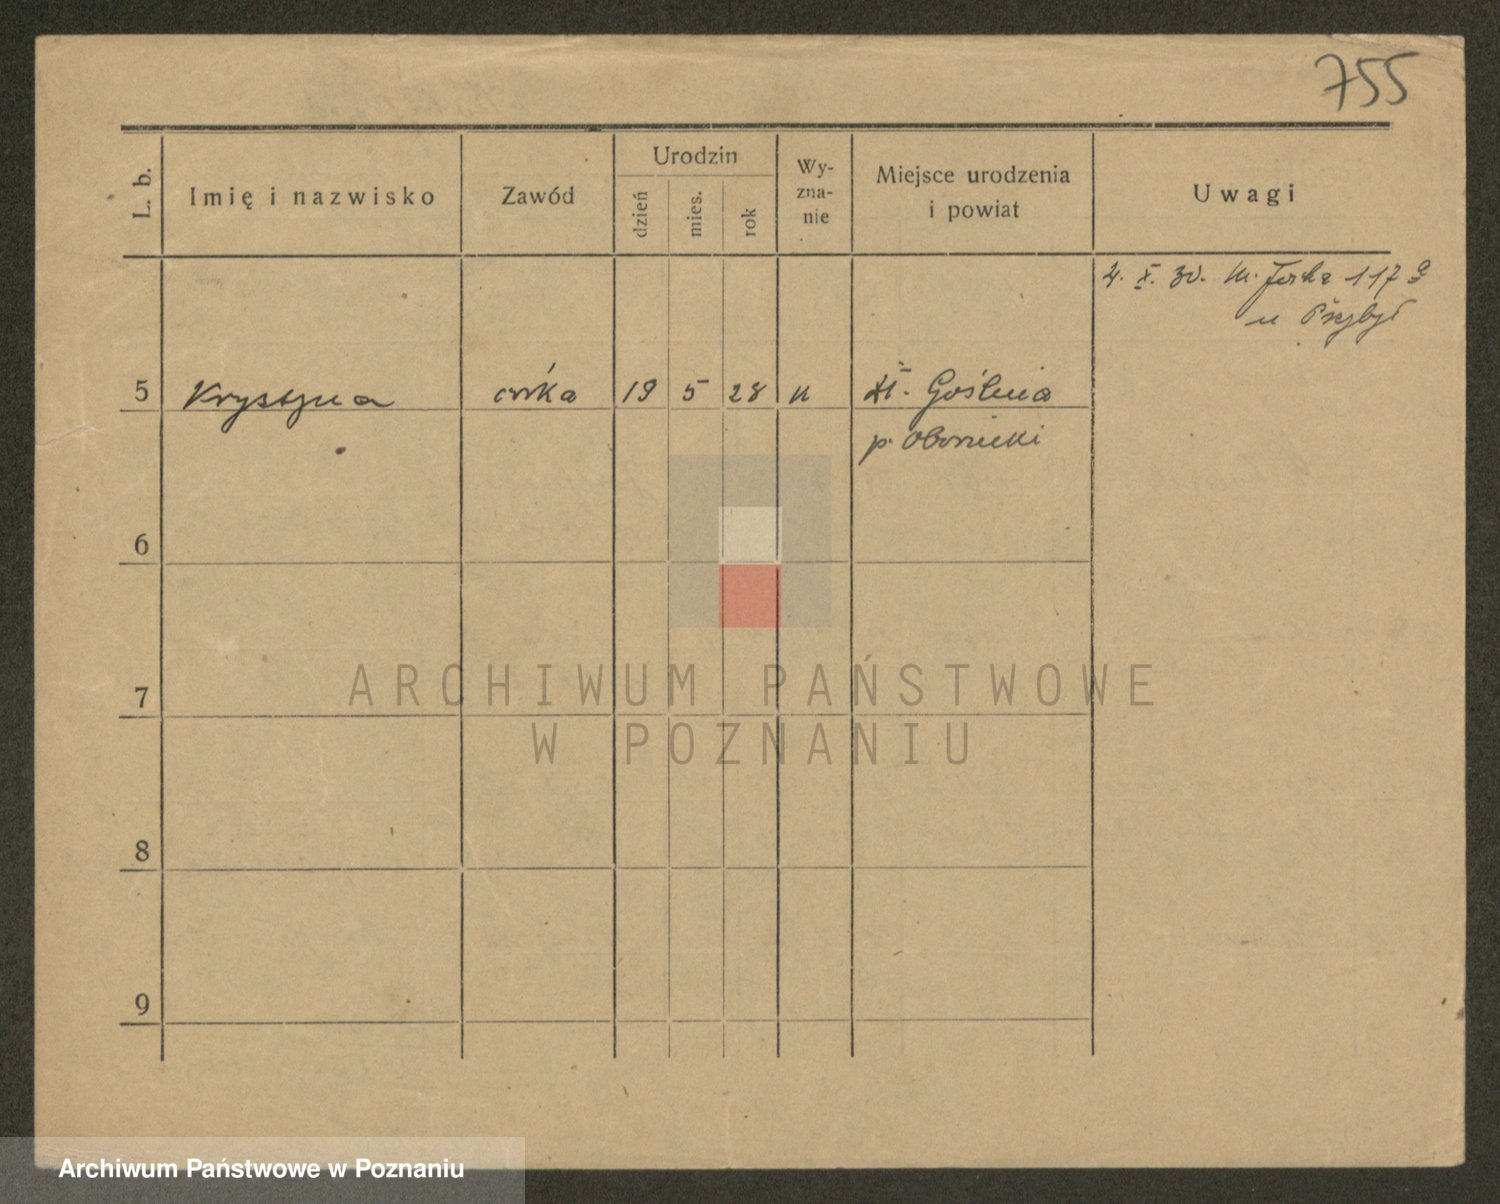 755
L. b.
Imię i nazwisko
Zawód
Urodzin
dzień
mies.
rok
Wy-
zna-
nie
Miejsce urodzenia
i powiat
Uwagi
4. X. 30. 117
u Przybył
5 Krystyna córka 19 5 28 k Goślina
p. Obornicki
6
7
8
9
ARCHIWUM PAŃSTWOWE
W POZNANIU
Archiwum Państwowe w Poznaniu